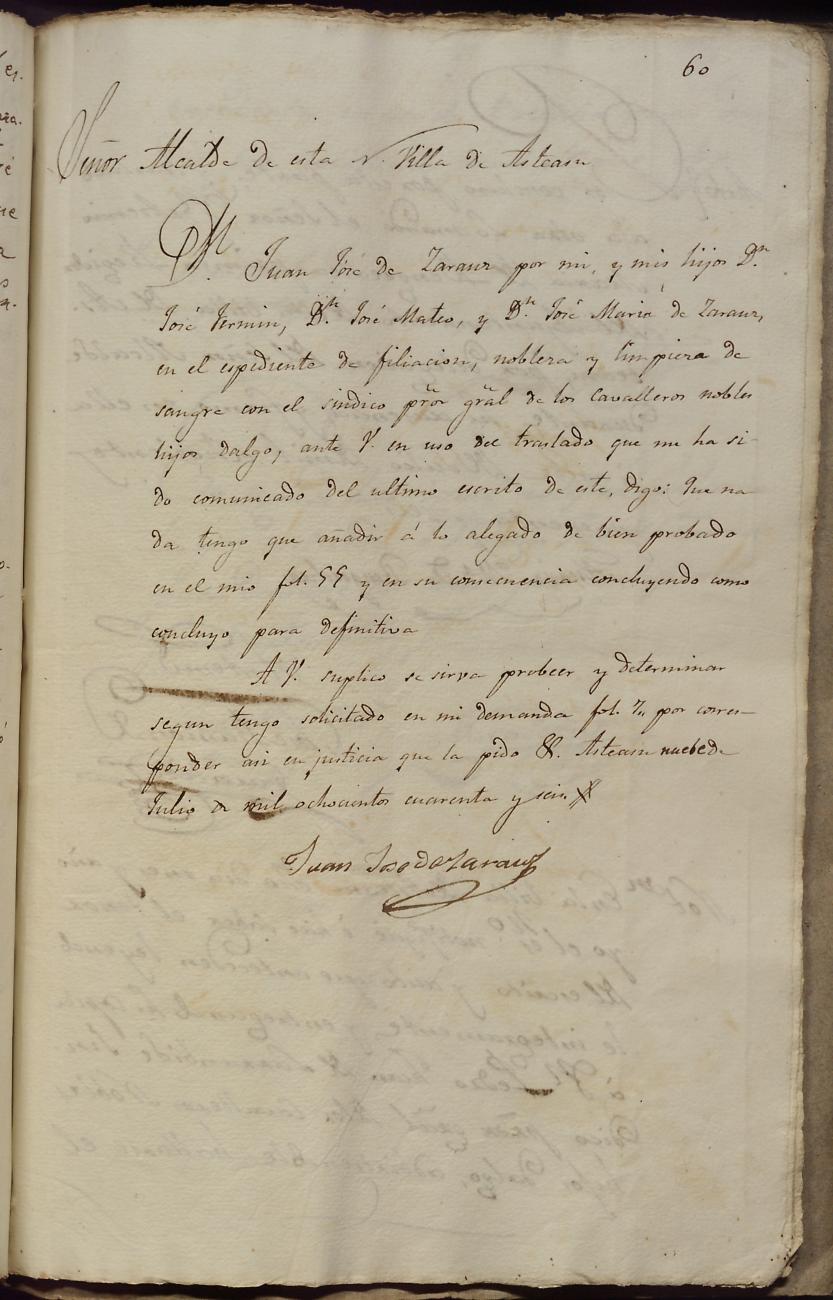 60
Señor Alcalde de esta N. Villa de Asteasu
Dn. Juan José de Zarauz por mi, y mis hijos Dn.
José Fermin, Dn. José Mateo, y Dn. José Maria de Zarauz,
en el espediente de filiacion, nobleza y limpieza de
sangre con el sindico pror gral de los Cavalleros nobles
hijos dalgo, ante V. en uso del traslado que me ha si-
do comunicado del ultimo escrito de este, digo: Que na
da tengo que añadir á lo alegado de bien probado
en el mio fol. 55 y en su consecuencia concluyendo como
concluyo para definitiva
A V. suplico se sirva probeer y determinar
segun tengo solicitado en mi demanda fol. 7,, por corres-
ponder asi en justicia que la pido &. Asteasu nuebe de
Julio de mil ochocientos cuarenta y seis.
Juan Jose de Zarauz